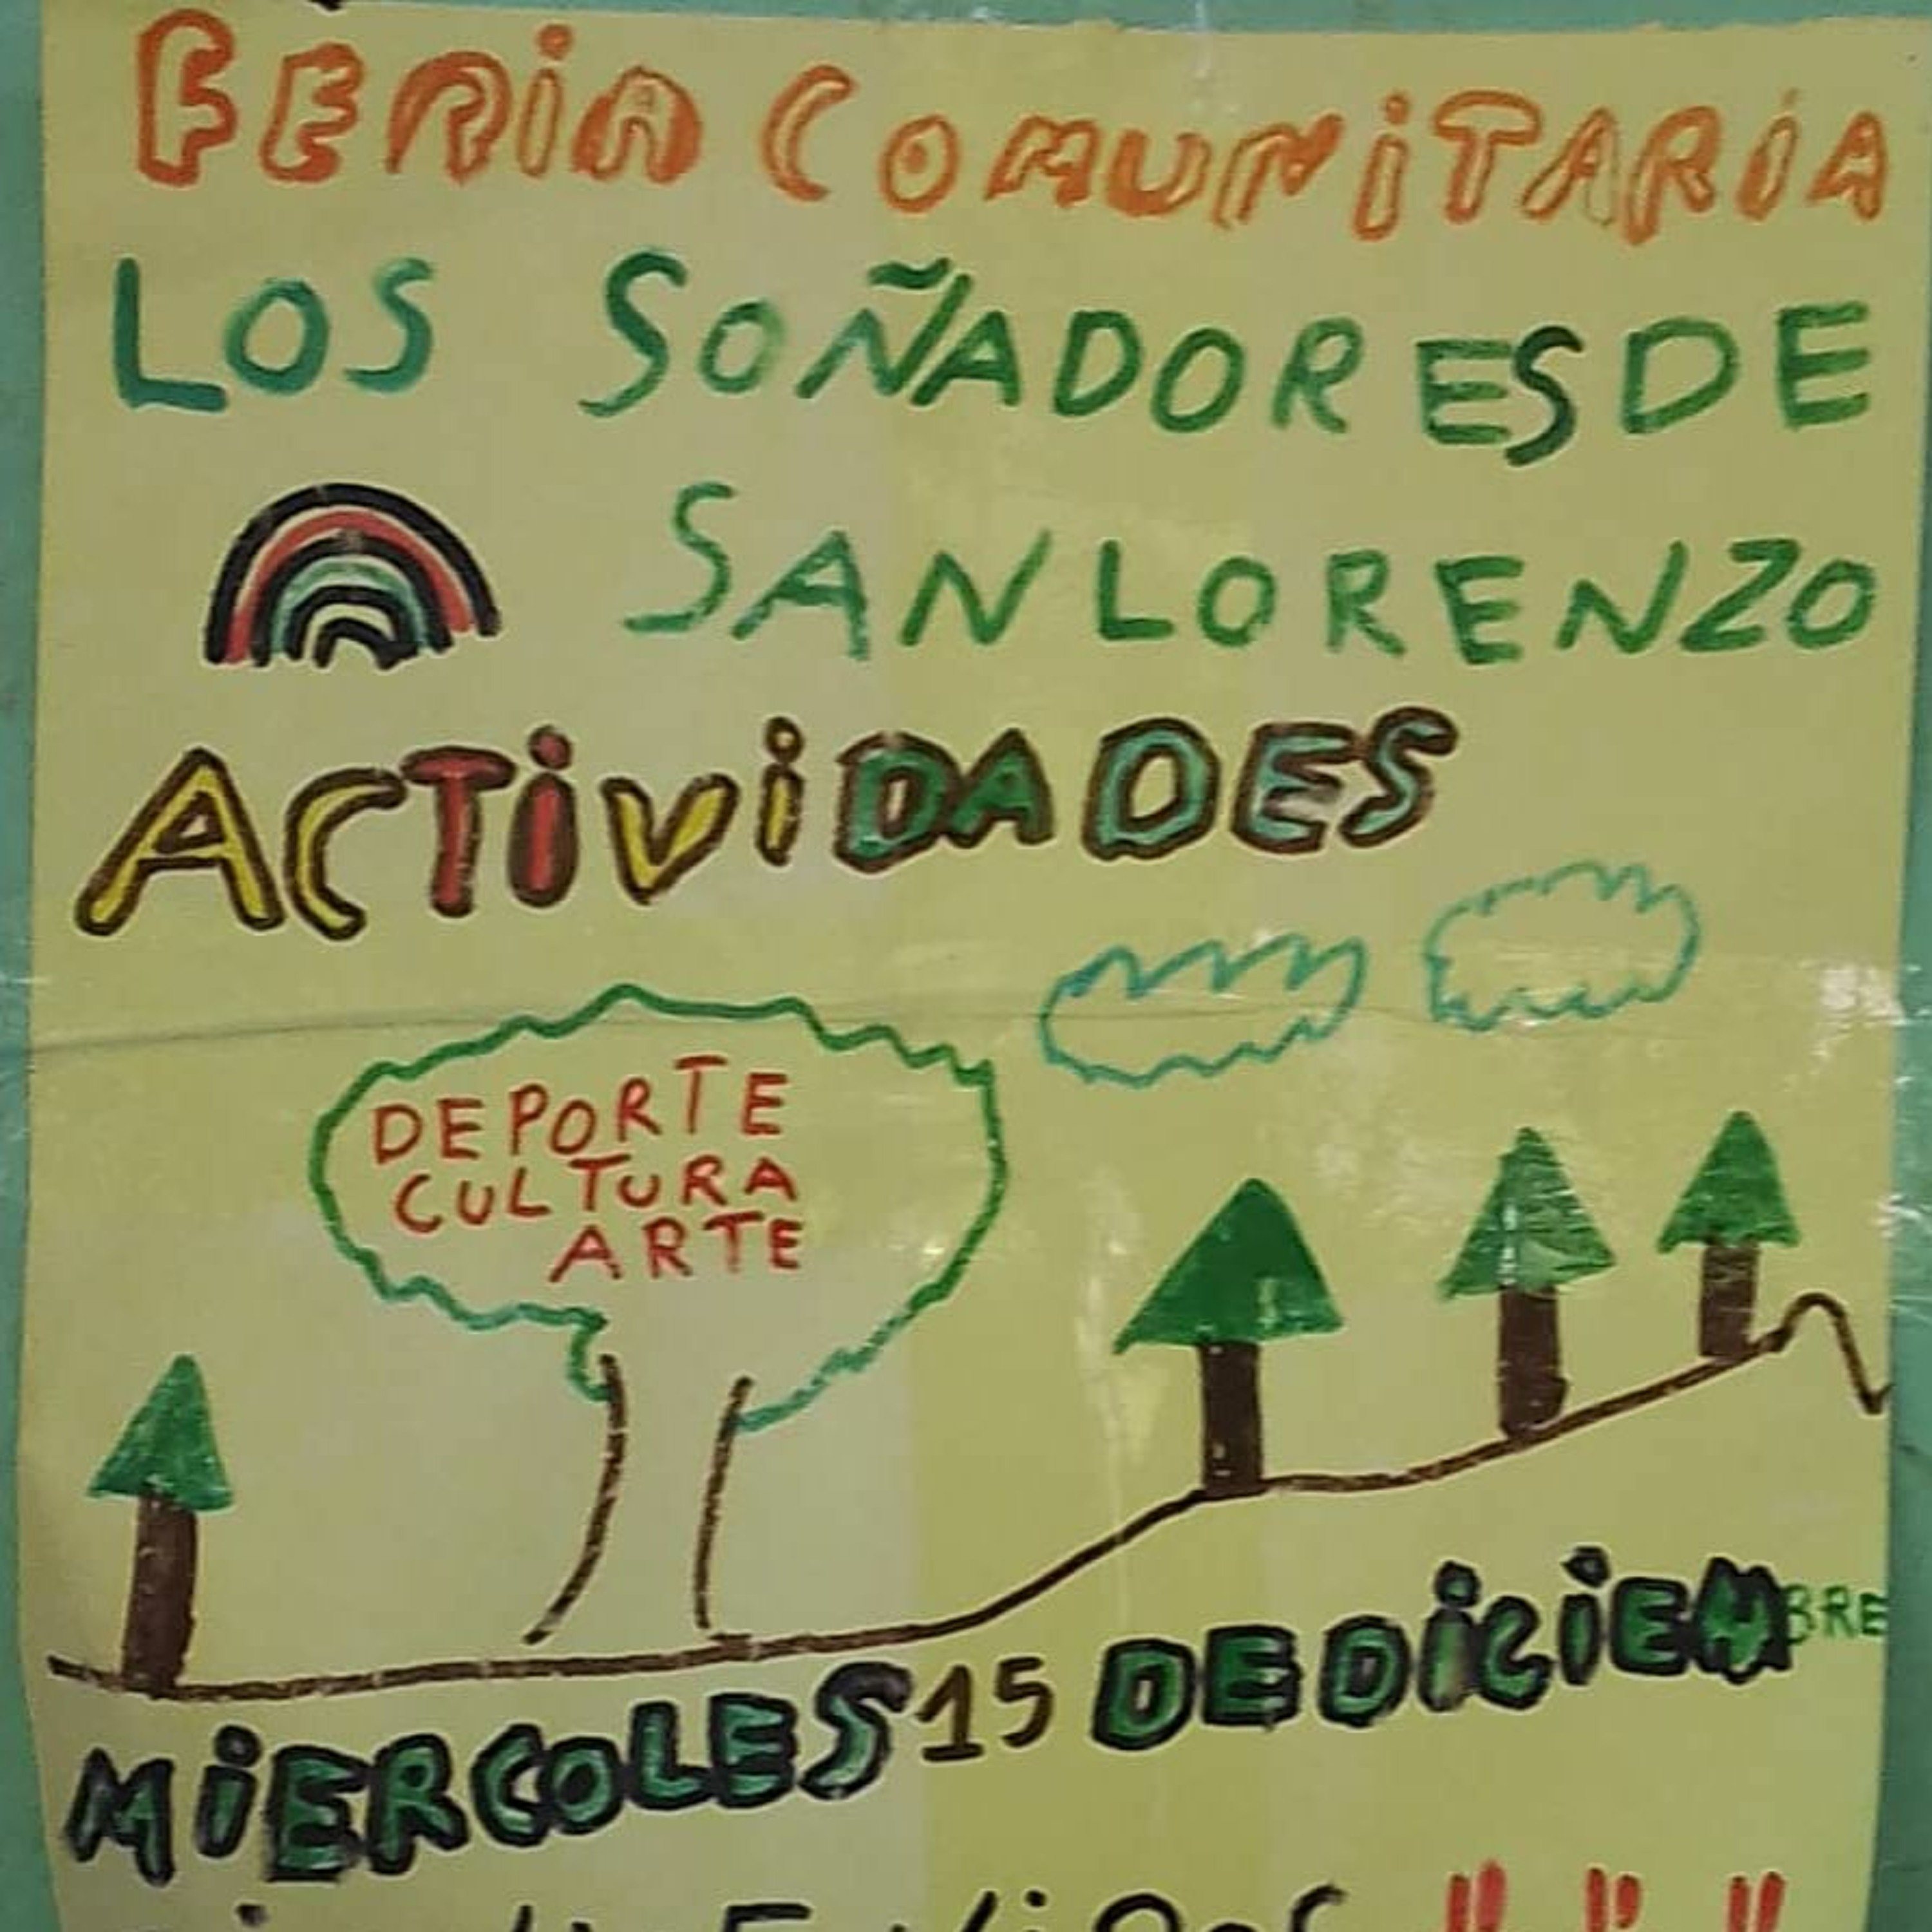 FERiA COMUNiTARiA
LOS SOÑADORES DE
SAN LORENZO
ACTiViDADES
DEPORTE
CULTURA
ARTE
MiERCOLES 15 DE DiCiEMBRE